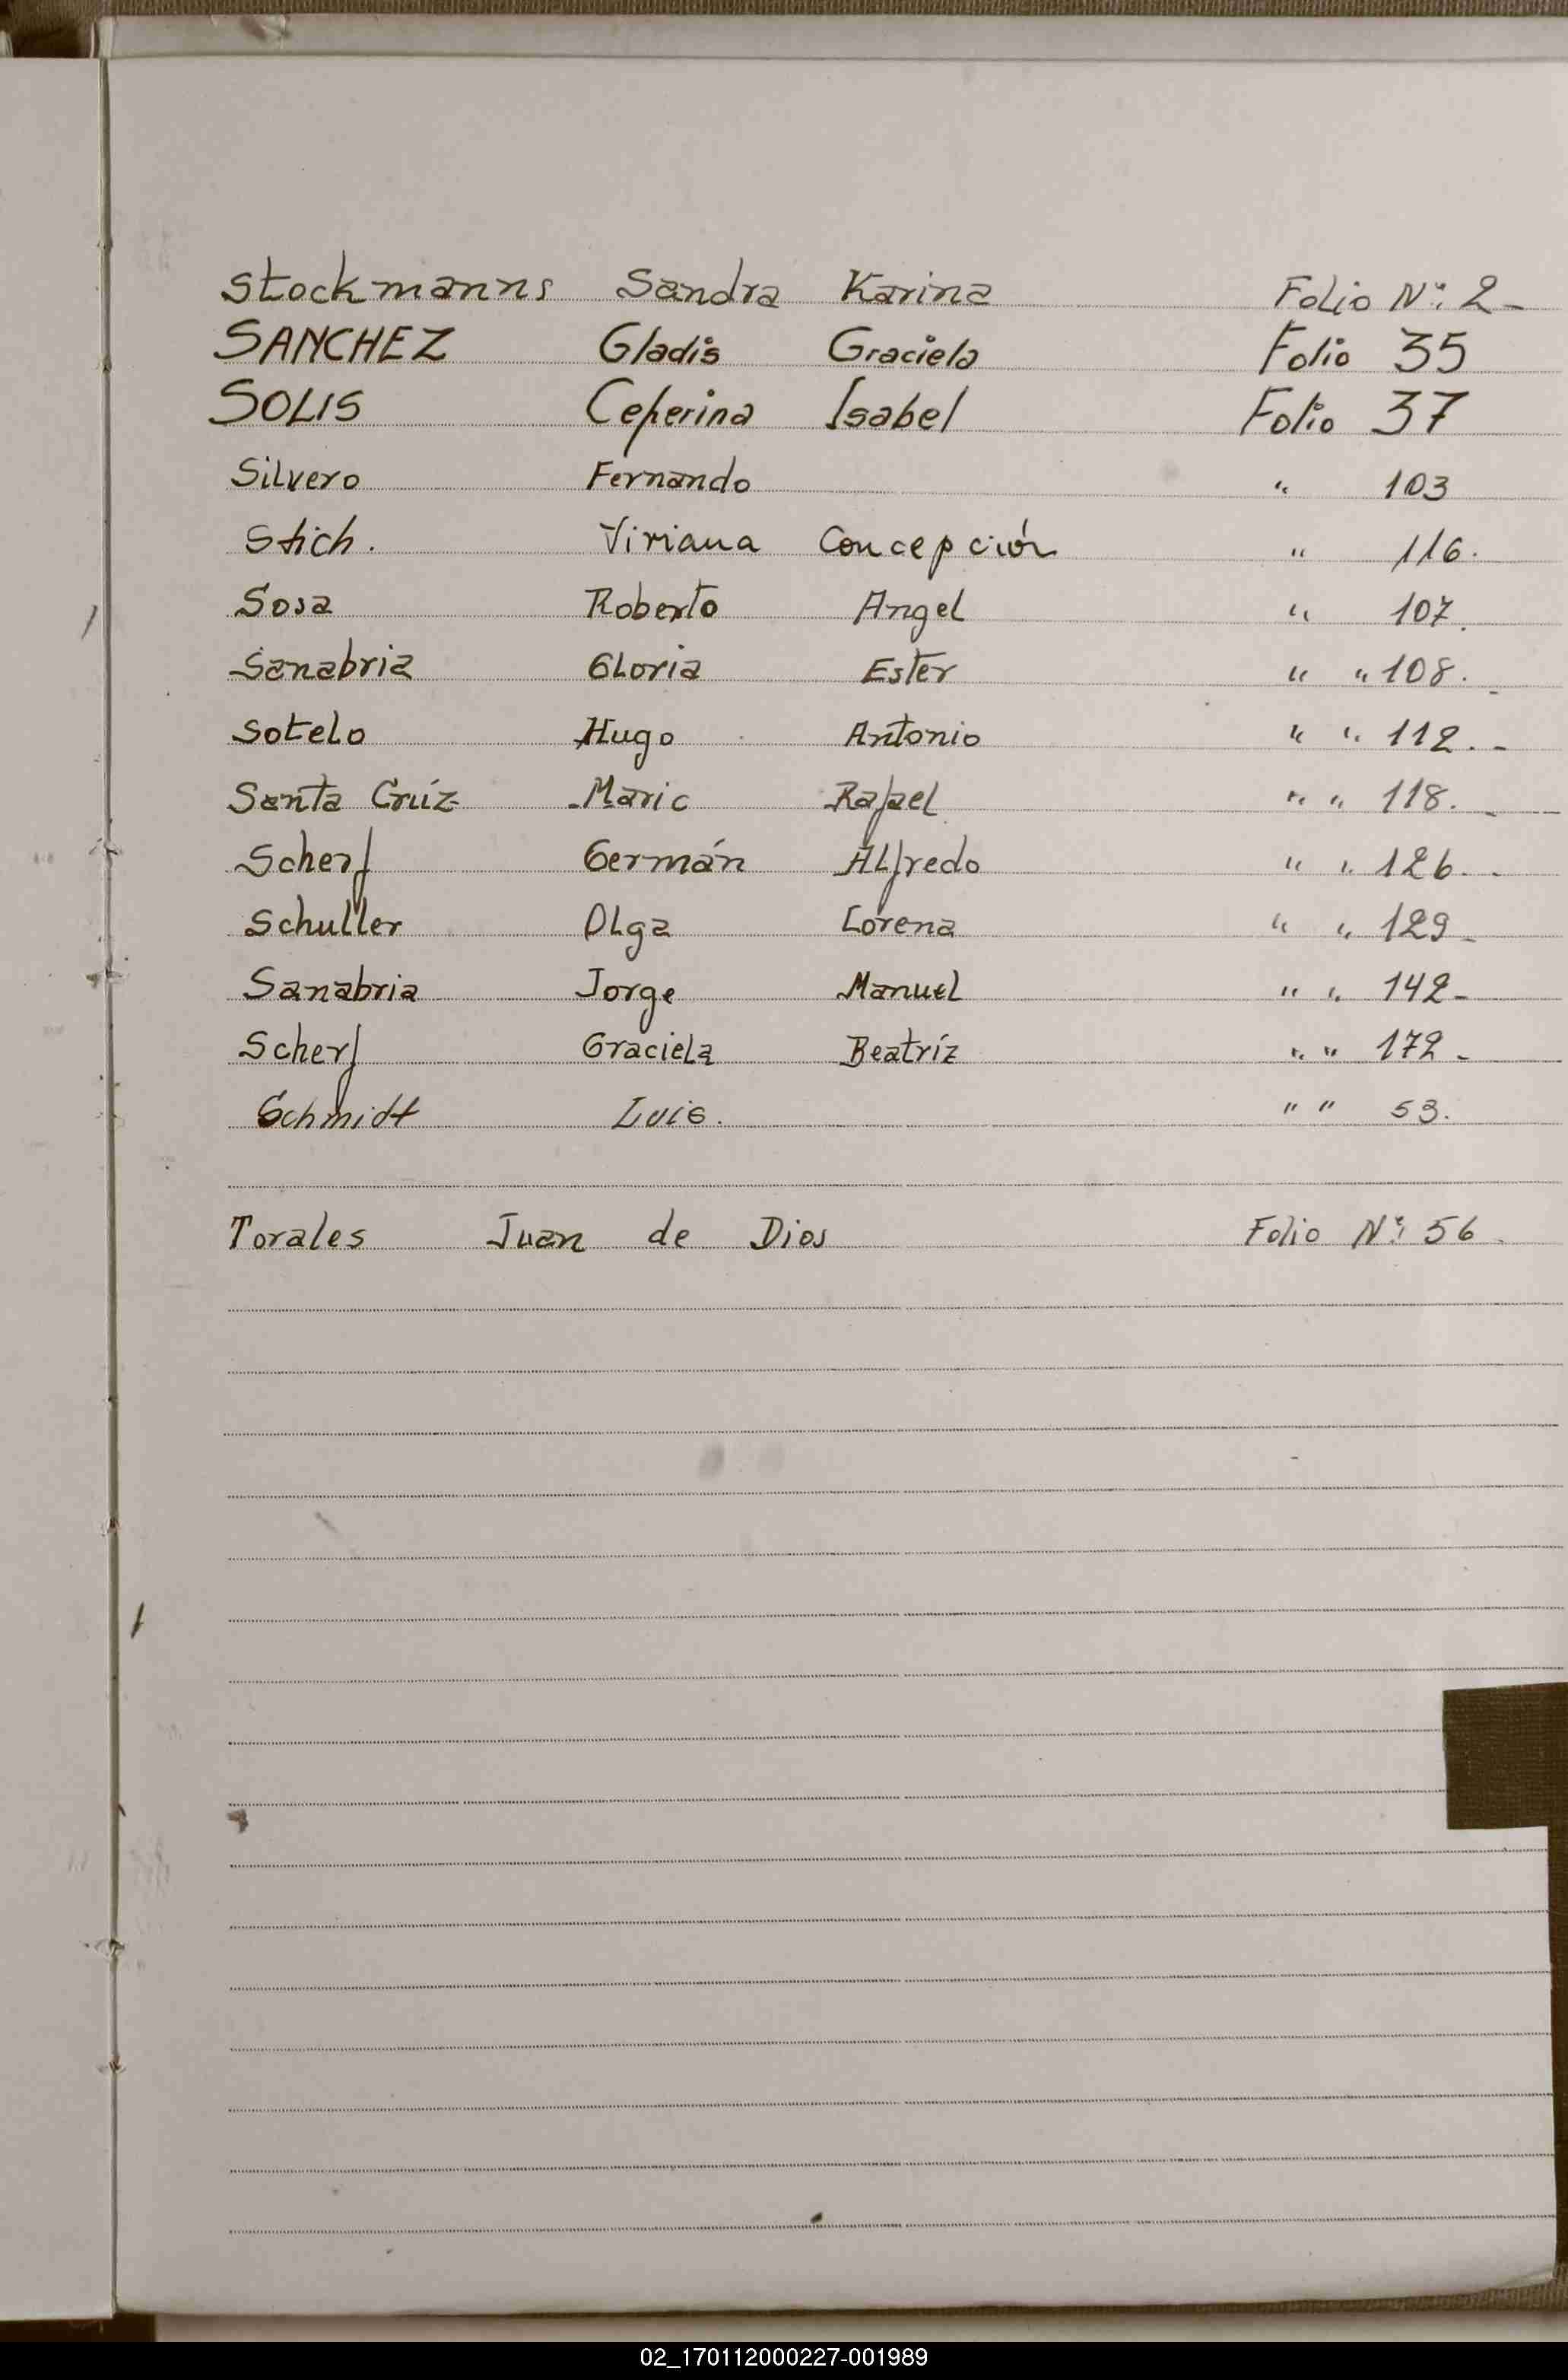 Stockmanns Sandra Karina Folio Nº: 2-
SANCHEZ Gladis Graciela Folio 35
SOLIS Ceferina Isabel Folio 37
Silvero Fernando " 103
Stich. Viviana Concepción " 116.
Sosa Roberto Angel " 107.
Sanabria Gloria Ester " " 108.
Sotelo Hugo Antonio " " 112.-
Santa Crúz Mario Rafael " " 118.
Scherf Germán Alfredo " " 126.-
Schuller Olga Lorena " " 129-
Sanabria Jorge Manuel " " 142-
Scherf Graciela Beatríz " " 172-
Schmidt Luis. " " 53.
Torales Juan de Dios Folio Nº: 56.
02_170112000227-001989